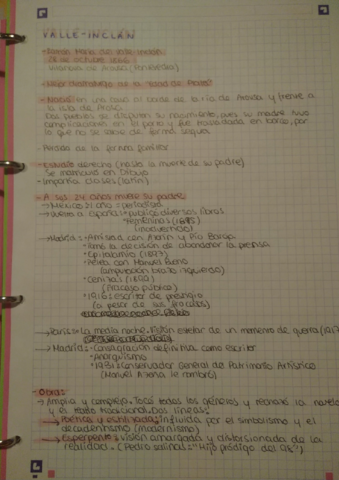 VALLE-INCLÁN
- Ramón María del Valle Inclán
28 de octubre 1866
Villanueva de Arosa (Pontevedra)
- Mejor dramaturgo de la "Edad de Plata"
- Nació en una casa al borde de la ría de Arosa y frente a
la isla de Arosa.
Dos pueblos se disputan su nacimiento, pues su madre tuvo
complicaciones en el parto y fue trasladada en barco, por
lo que no se sabe de forma segura.
- Perdida de la fortuna familiar.
- Estudió derecho (hasta la muerte de su padre)
Se matriculó en Dibujo
- Impartía clases (latín)
- A sus 24 años muere su padre:
→ México: 1 año = periodista
→ vuelta a España: publica diversas obras
"Femeninas" (1895)
→ Madrid: - Amistad con Azorín y Pío Baroja
- Tomó la decisión de abandonar la prensa
- Epitalamio (1897)
- Pelea con Manuel Bueno
(amputación brazo izquierdo)
- Cenizas (1899)
(fracaso público)
- 1916: escritor de prestigio
(a pesar de sus fracasos)
→ París: La media noche. Visión estelar de un momento de guerra (1917)
→ Madrid: - Consagración definitiva como escritor
- Anarquismo
- 1931: Conservador General del Patrimonio Artístico
(Manuel Azaña le nombró)
- Obras:
- Amplia y compleja. Tocó todos los géneros y rechazó la novela
→ Poética y estilizada: influida por el simbolismo y el
decadentismo (modernismo)
→ Esperpento: visión amargada y distorsionada de la
realidad. (Pedro Salinas: "Hijo pródigo del 98")